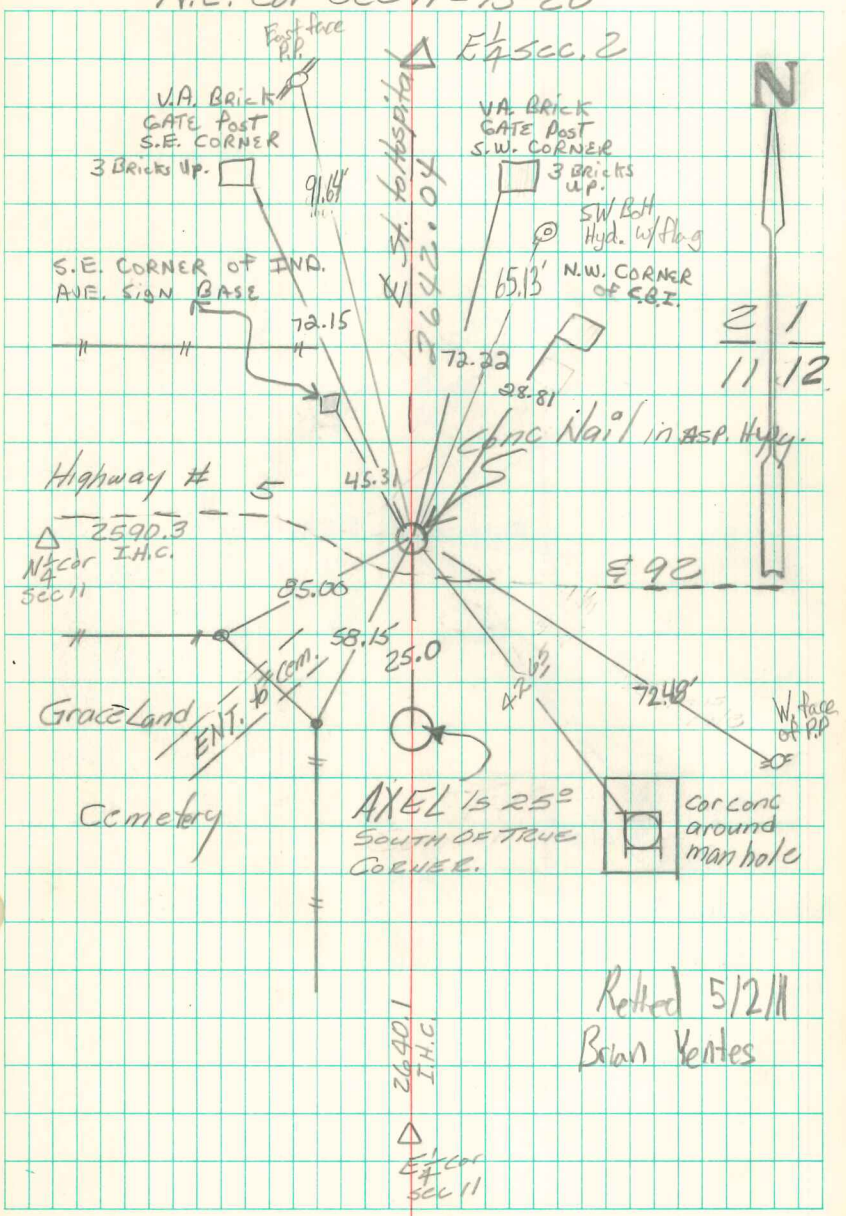 N.E. Cor Sec 11-15-20
East face
P.P.
E 1/4 sec. 2
V.A. BRICK
GATE POST
S.E. CORNER
3 BRICKS UP.
V.A. BRICK
GATE POST
S.W. CORNER
3 BRICKS
UP.
N
℄ St. to Hospital
2642.04
91.64'
SW Bolt
Hyd. w/flag
65.13'
N.W. CORNER
OF C.B.I.
S.E. CORNER of IND.
AVE. SIGN BASE
72.15
72.22
28.81
2 1
11 12
Conc Nail in ASP. Hwy.
Highway # 5
45.31
2590.3
I.H.C.
N 1/4 cor
sec 11
℄ 92
85.00
58.15
25.0
72.48'
ENT. to Cem.
W. face
of P.P
GraceLand
Cemetery
AXEL is 25°
SOUTH OF TRUE
CORNER.
cor conc
around
manhole
Retied 5/2/11
Brian Yentes
2640.1
I.H.C.
E 1/4 cor
sec 11